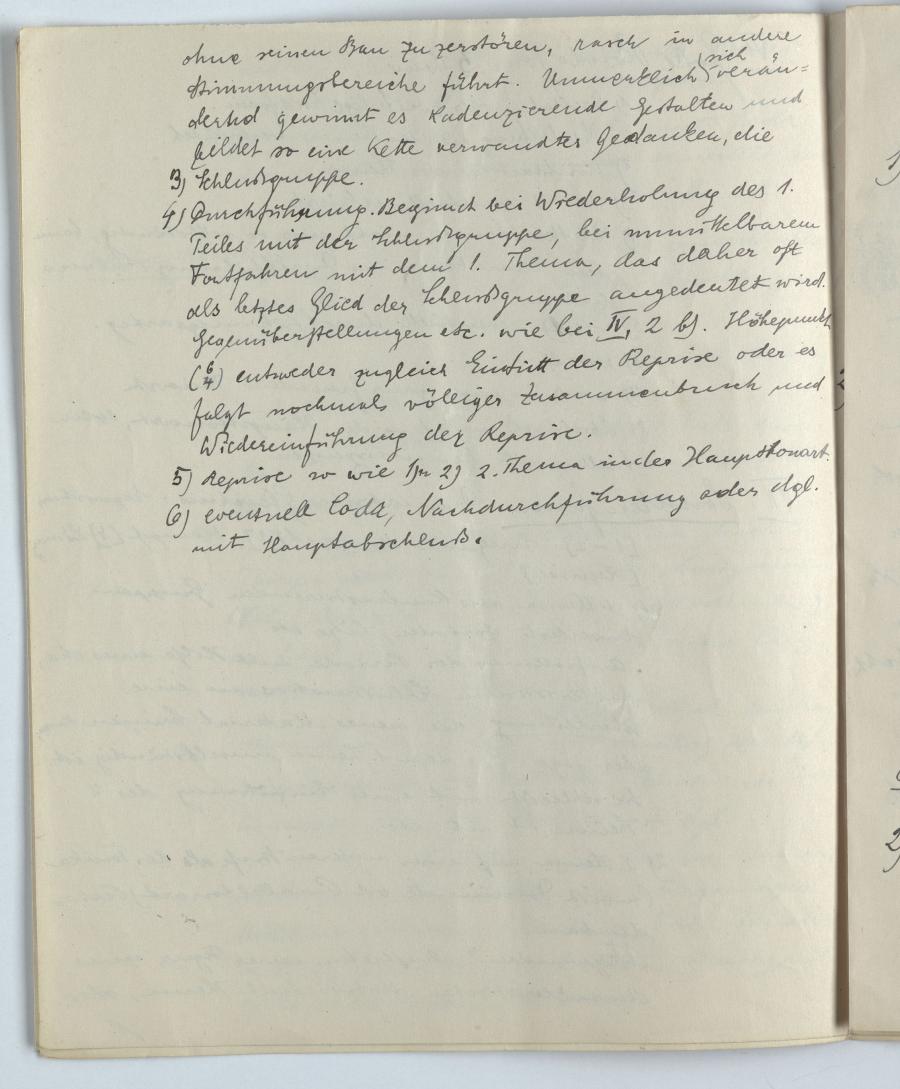 ohne seinen Bau zu zerstören, rasch in andere
Stimmungsbereiche führt. Unmerklich sich verän-
dernd gewinnt es kadenzierende Gestalten und
bildet so eine Kette verwandter Gedanken, die
3) Schlußgruppe.
4) Durchführung. Beginnt bei Wiederholung des 1.
Teiles mit der Schlußgruppe, bei unmittelbarem
Fortfahren mit dem 1. Thema, das daher oft
als letztes Glied der Schlußgruppe angedeutet wird.
Gegenüberstellungen etc. wie bei IV, 2 b). Höhepunkt
(6/4) entweder zugleich Eintritt der Reprise oder es
folgt nochmals völliger Zusammenbruch und
Wiedereinführung der Reprise.
5) Reprise so wie 1) 2) 2. Thema in der Haupttonart.
6) eventuell Coda, Nachdurchführung oder dgl.
mit Hauptabschluß.
1)
2)